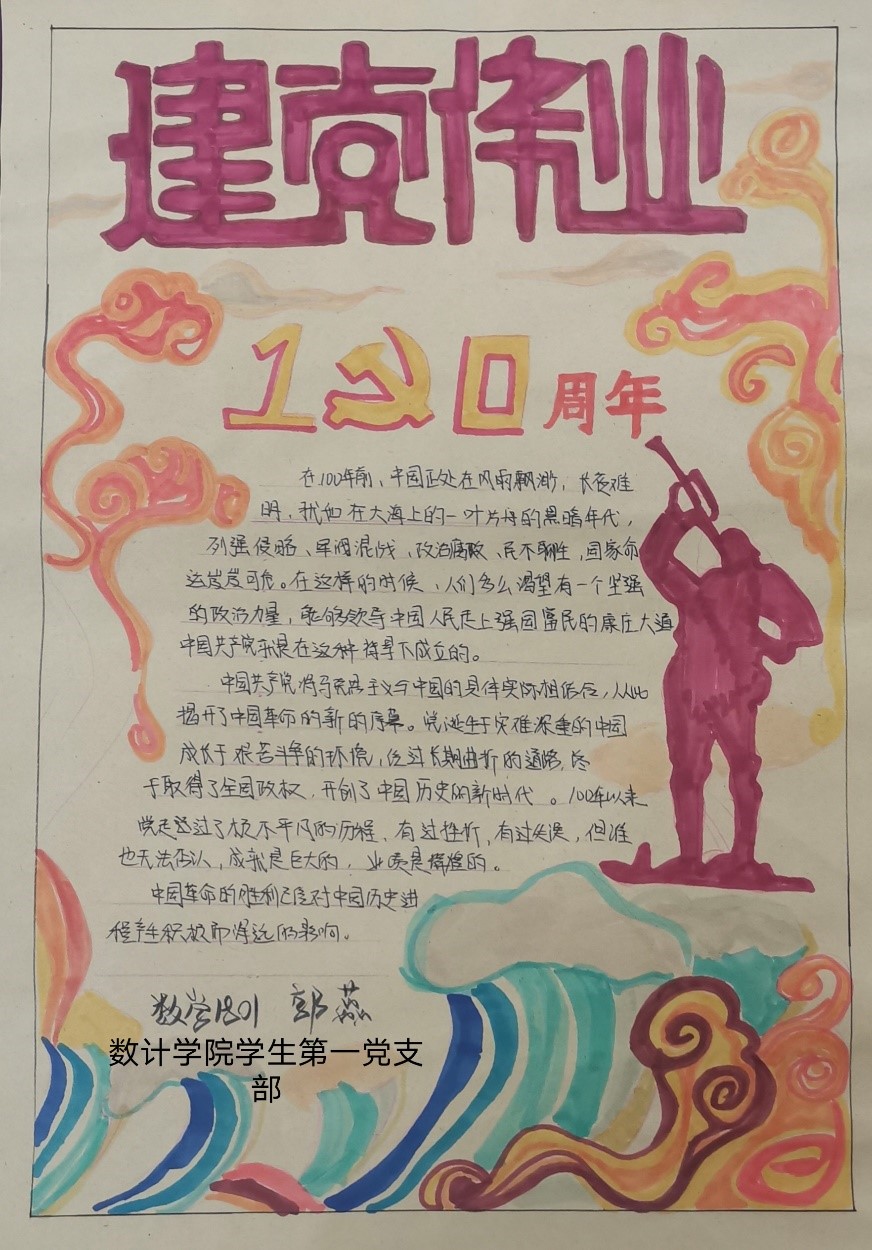 建党伟业
1 0周年
在100年前、中国正处在风雨飘渺，长夜难
明，我们在大海上的一叶片舟的黑暗年代，
列强侵略、军阀混战、政治腐败、民不聊生，国家命
运岌岌可危。在这样的时候、人们多么渴望有一个坚强
的政治力量，能够领导中国人民走上强国富民的康庄大道
中国共产党就是在这种背景下成立的。
中国共产党将马克思主义与中国的具体实际相结合，从此
揭开了中国革命的新的序章。党诞生于灾难深重的中国
成长于艰苦斗争的环境，经过长期曲折的道路，终
于取得了全国政权，开创了中国历史的新时代。100年以来
党走过了极不平凡的历程，有过挫折，有过失误，但谁
也无法否认，成就是巨大的，业绩是辉煌的。
中国革命的胜利已经对中国历史进
程产生积极而深远的影响。
数学1801 郭燕
数计学院学生第一党支
部